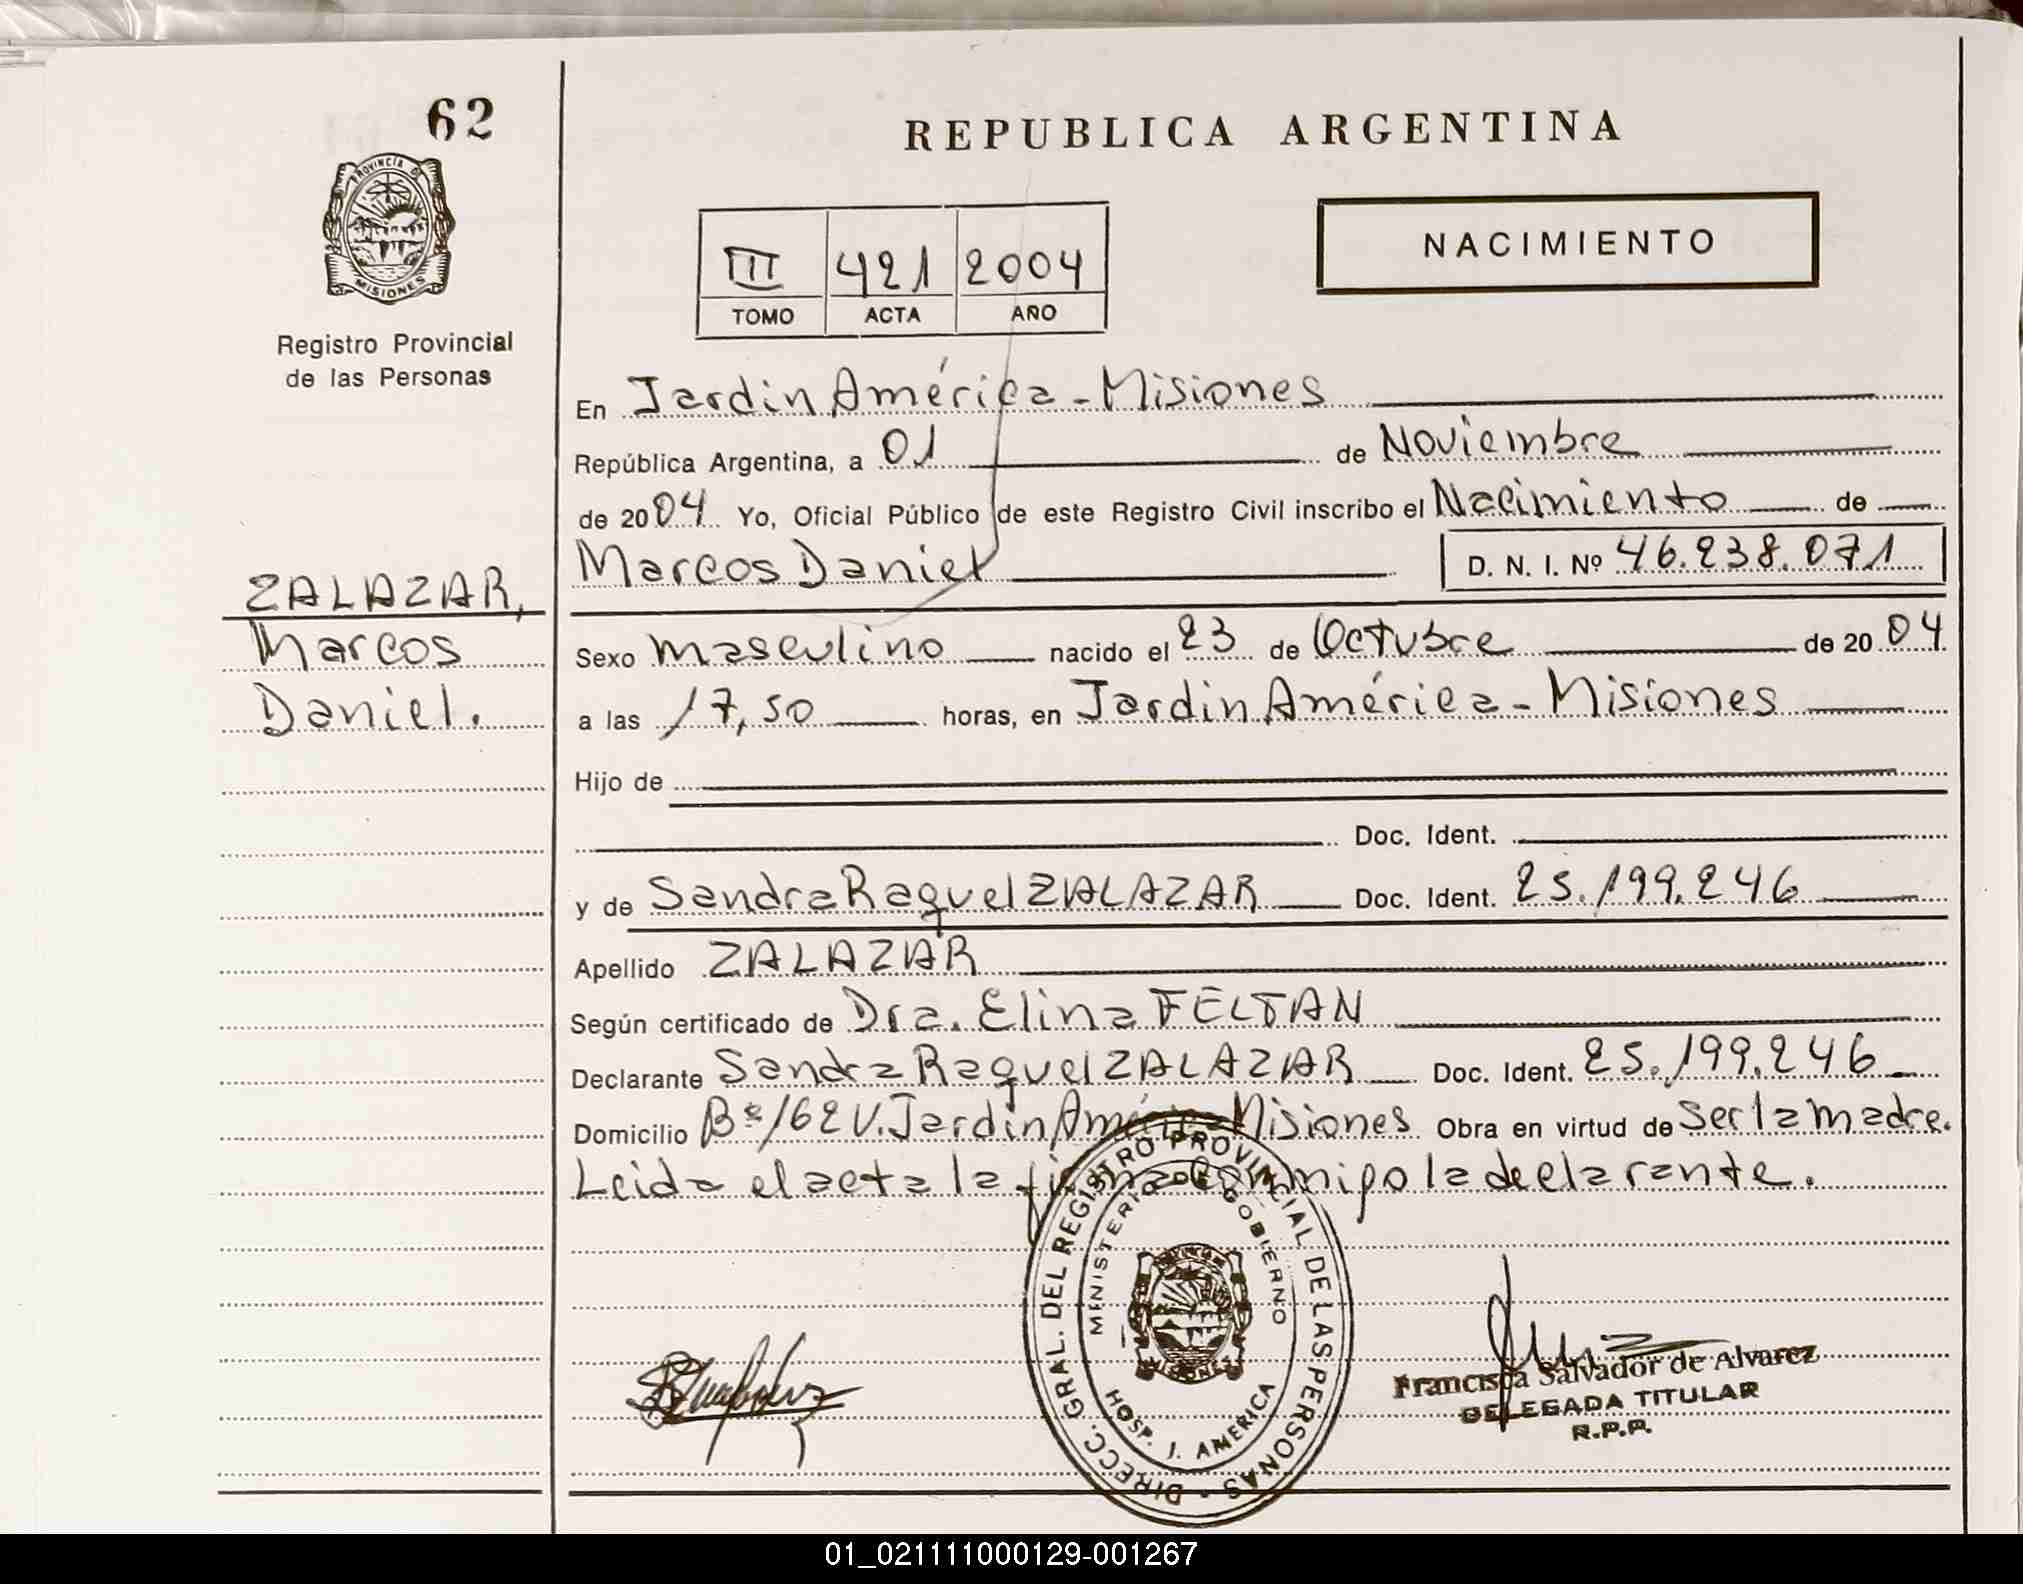 62
REPUBLICA ARGENTINA
PROVINCIA DE
MISIONES
NACIMIENTO
III 421 2004
TOMO ACTA AÑO
Registro Provincial
de las Personas
En Jardin América - Misiones
República Argentina, a 01 de Noviembre
de 2004 Yo, Oficial Público de este Registro Civil inscribo el Nacimiento de
Marcos Daniel D. N. I. Nº 46.238.071
ZALAZAR,
Marcos
Daniel.
Sexo masculino nacido el 23 de Octubre de 2004
a las 17,50 horas, en Jardin América - Misiones
Hijo de
Doc. Ident.
y de Sandra Raquel ZALAZAR Doc. Ident. 25.199.246
Apellido ZALAZAR
Según certificado de Dra. Elina FELTAN
Declarante Sandra Raquel ZALAZAR Doc. Ident. 25.199.246
Domicilio Bº 162 V. Jardin América Misiones Obra en virtud de ser la madre.
Leida el acta la firma conmigo la declarante.
DIRECC. GRAL. DEL REGISTRO PROVINCIAL DE LAS PERSONAS
MINISTERIO DE GOBIERNO
MISIONES
HOSP. J. AMERICA
Francisca Salvador de Alvarez
DELEGADA TITULAR
R.P.P.
01_021111000129-001267